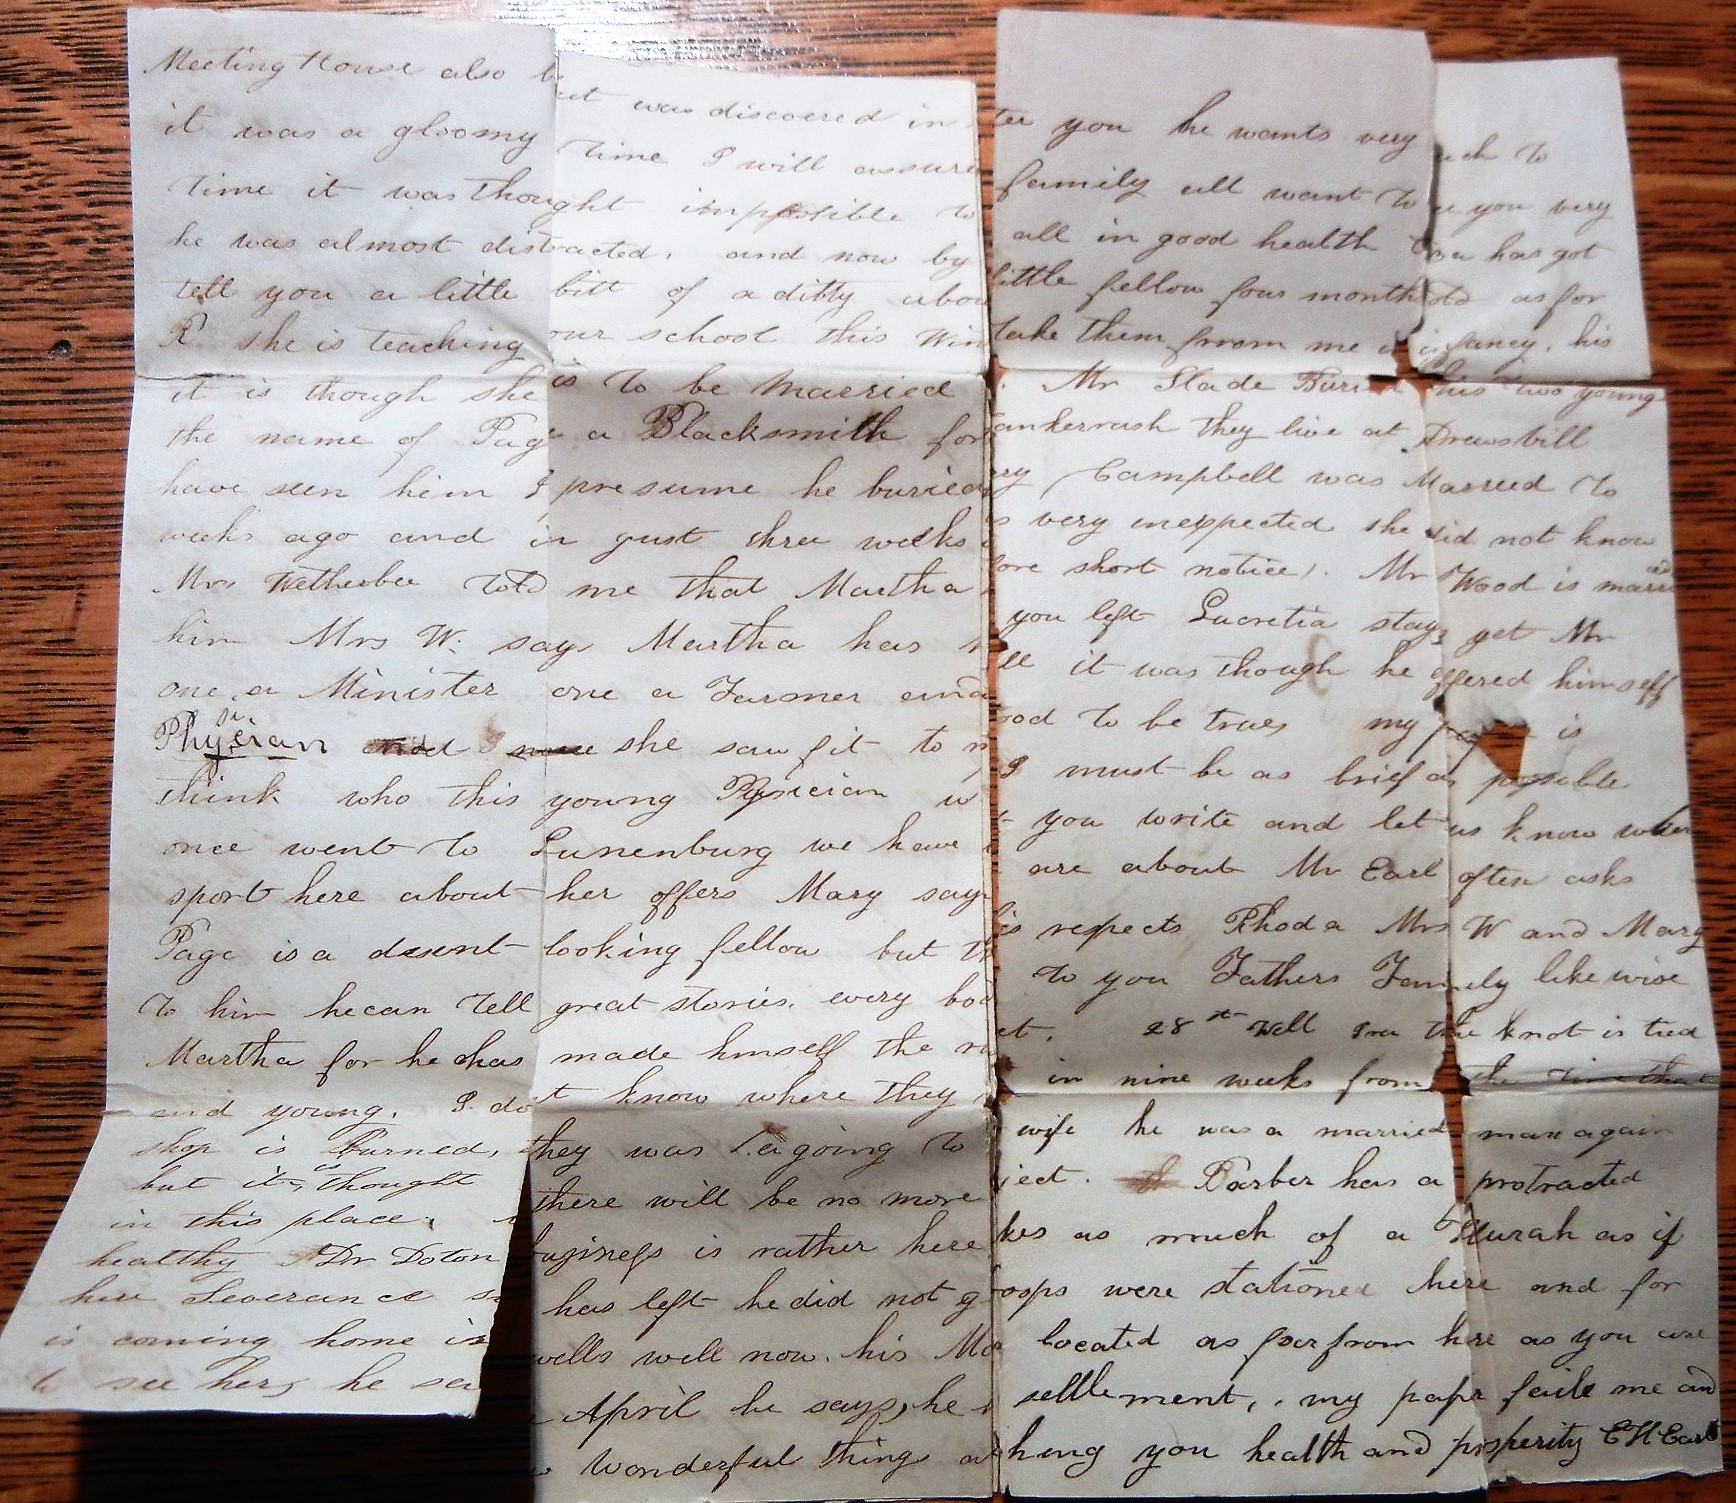 Meeting House also
but was discovered in
it was a gloomy time I will assure
time it was thought impossible to
he was almost distracted, and now by
tell you a little bitt of a ditty abou
R she is teaching our school this Win
it is though she is to be Married
the name of Page a Blacksmith for
have seen him I presume he buried
weeks ago and in gust three weeks
Mrs Wetherbee told me that Martha
him Mrs W. says Martha has
one a Minister one a Farmer and
Physician she saw fit to
think who this young Pysician w
once went to Lunenburg we have
sport here about her offers Mary say
Page is a desent looking fellow but th
to him he can tell great stories. every bod
Martha for he has made himself the
and young. I dot know where they
shop is Burned, they was a going to
but it is thought there will be no more
in this place, buziness is rather here
healthy Dr Doton has left he did not g
here Severance wells well now. his Mo
is coming home in April he says, he
to see her, he wonderful things
ter you he wants very uch to
family all want to you very
all in good health has got
little fellow four month old as for
take them from me in infancy. his
Mr Slade Buried his two young
ankerrash they live at Drewsvill
ry Campbell was Married to
very inexpected she did not know
fore short notice. Mr Wood is married
you left Lucretia stays yet Mr
ll it was though he offered himself
to be true, my is
I must be as brief as possible
you write and let us know when
are about Mr Earl often asks
is respects Rhoda Mrs W and Mary
to you Fathers Family likewise
et. 28 st Well Ira the knot is tied
in nine weeks from the time that
wife he was a married man again
ject. Barber has a protracted
kes as much of a Hurah as if
oops were stationed here and for
located as far from here as you are
settlement, my papr faile me and
hing you health and prosperity E H Earl